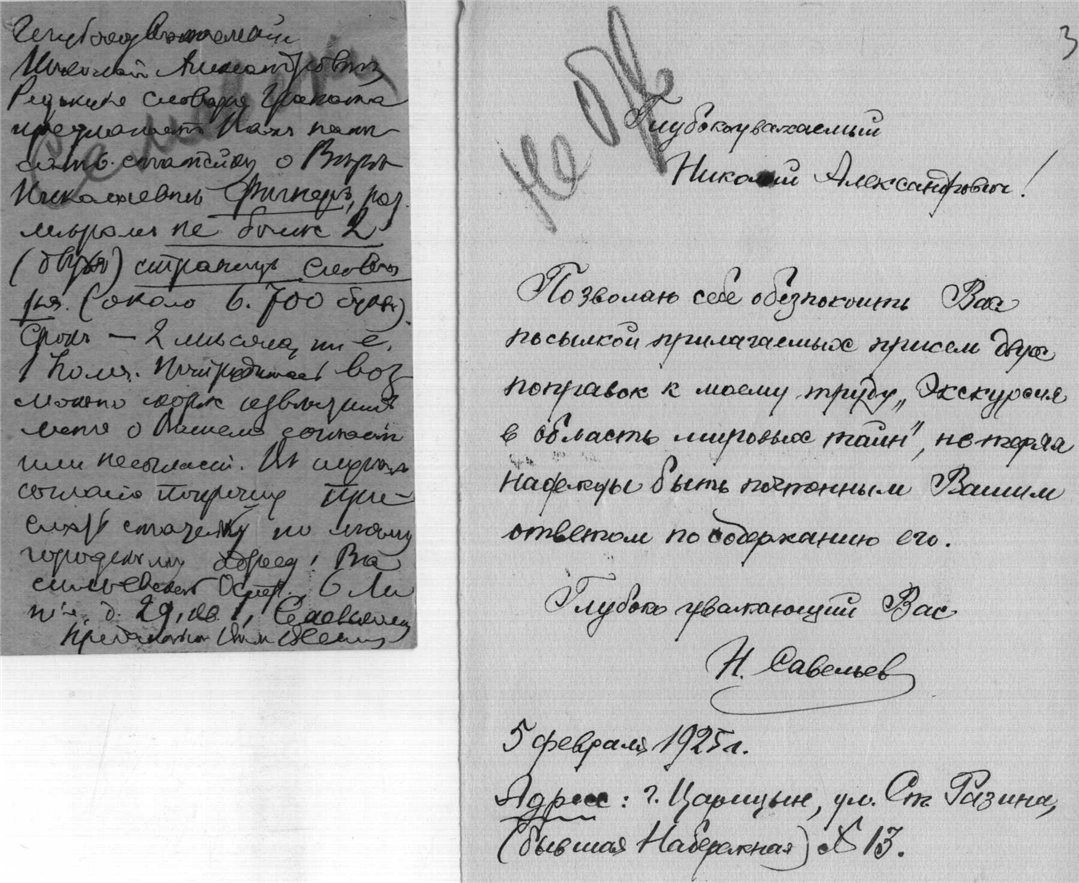 Глубокоуважаемый
Николай Александровичъ
Редакция словаря Граната
предлагает Вам напи-
сать статейку о Вере
Николаевне Фигнеръ, раз
мером не более 2
(двух) страниц слова
ря. (около 6.700 букв).
Срок — 2 месяца, т. е.
возможно
скорее
меня о Вашем согласии
или несогласии. В
согласия при-
статейку по моему
городскому адресу: Ва
сильевский Остров, 6 Ли
ния, д. 29, кв 1,
Не
3
Глубокоуважаемый
Николай Александрович!
Позволяю себе обезпокоить Вас
посылкой прилагаемых при сем двух
поправок к моему труду „Экскурсия
в область мировых тайн", не теряя
надежды быть почтенным Вашим
ответом по содержанию его.
Глубоко уважающий Вас
Н. Савельев
5 февраля 1925 г.
Адрес: г. Царицын, ул. Ст. Разина,
(бывшая Набережная) № 13.